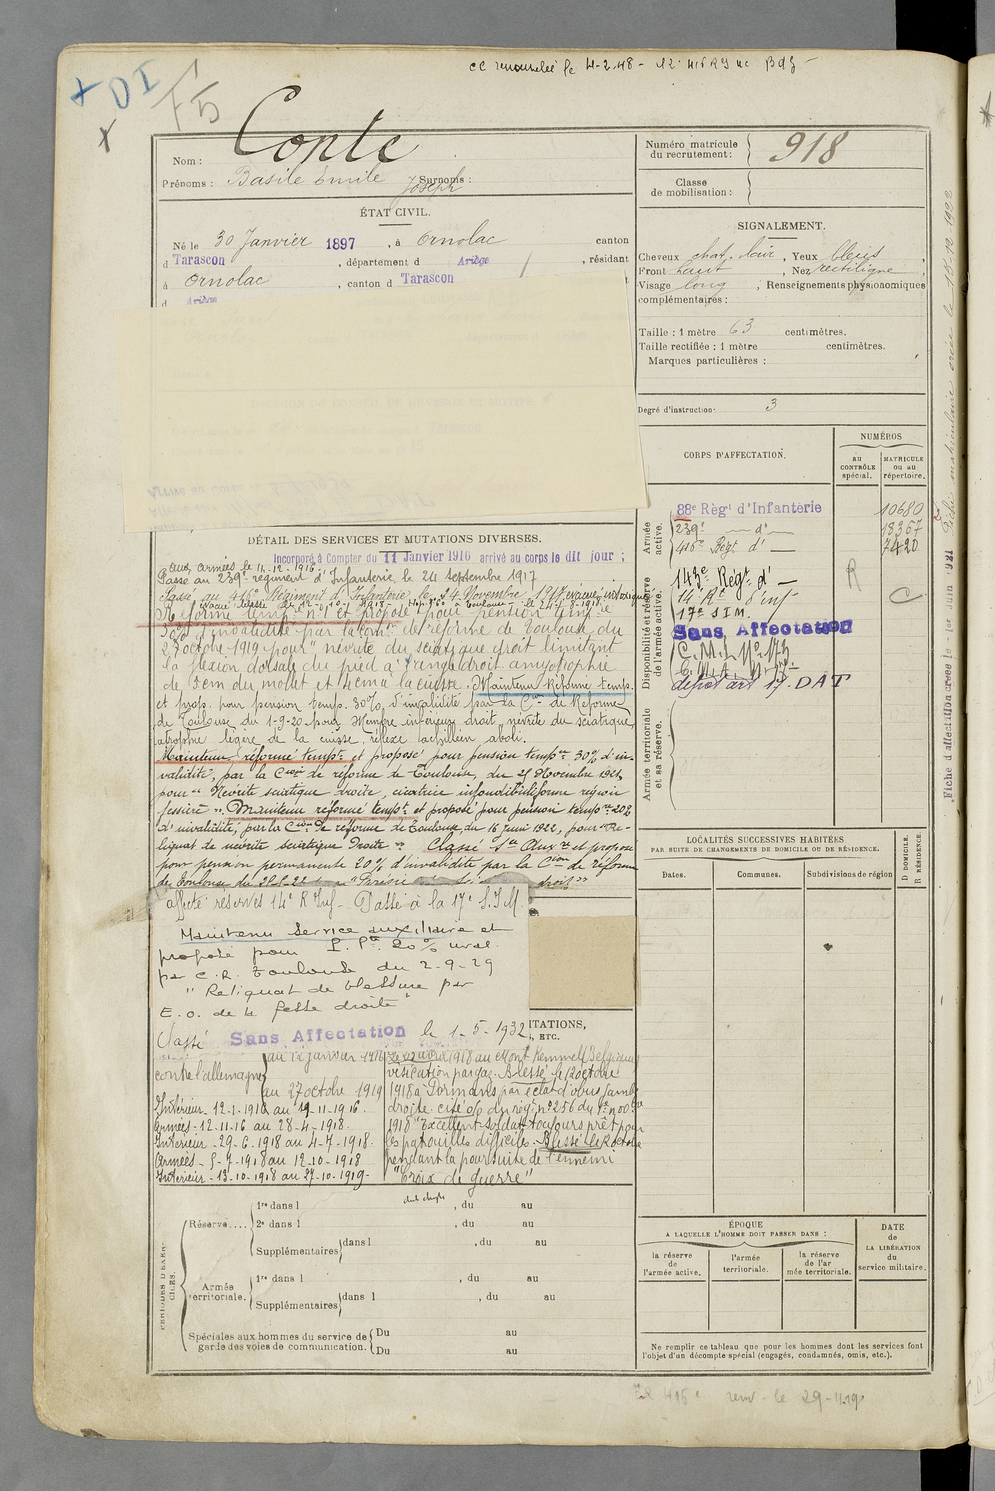 cc renouvelée le 4-2-48 -
+ DI F5
Nom : Conte
Prénoms : Basile Emile Joseph Surnoms :
ÉTAT CIVIL.
Né le 30 Janvier 1897, à Ornolac canton
d Tarascon, département d Ariège, résidant
à Ornolac, canton d Tarascon
d Ariège
DÉTAIL DES SERVICES ET MUTATIONS DIVERSES.
Incorporé à Compter du 11 Janvier 1916 arrivé au corps le dit jour ;
aux armées le 11-12-1916.
Passé au 239e régiment d'Infanterie le 24 septembre 1917
Passé au 416e Régiment d'Infanterie le 4 Novembre 1917 évacué intoxiqué
Réformé temp. n° 1 et proposé pour pension temp.
30% d'invalidité par la Comon de réforme de Toulouse du
27 octobre 1919 pour "névrite du sciatique droit limitant
la flexion dorsale du pied à l'angle droit amyotrophie
de 3cm du mollet et 4cm à la cuisse. Maintenu Réformé temp.
et prop. pour pension temp. 30% d'invalidité par la Con de Réforme
de Toulouse du 1-9-20 pour Membre inférieur droit, névrite du sciatique,
atrophie légère de la cuisse, réflexe achilléen aboli.
Maintenu réformé tempre et proposé pour pension tempre 30% d'in-
validité, par la Cion de réforme de Toulouse, du 21 Novembre 1921,
pour "Névrite sciatique droite, cicatrice infundibuliforme région
fessière". Maintenu réformé tempre et proposé pour pension tempre 20%
d'invalidité, par la Cion de réforme de Toulouse du 16 Juin 1922, pour "Re-
liquat de névrite sciatique droite" Classé Sce Auxre et proposé
pour pension permanente 20% d'invalidité par la Cion de réforme
de Toulouse du
affecté réserves 14e R Inf - Passé à la 17e S.I.M.
Maintenu Service auxiliaire et
proposé pour P. Pte 20%
par C.R. Toulouse du 2-9-29
"Reliquat de blessure par
E.O. de la fesse droite"
Passé Sans Affectation le 1-5-1932
ITATIONS,
, ETC.
contre l'allemagne
au 12 janvier 1916
au 27 octobre 1919
Intérieur - 12-1-1916 au 11-11-1916.
Armées - 12-11-16 au 28-4-1918.
Intérieur - 29-6-1918 au 4-7-1918.
Armées - 5-7-1918 au 12-10-1918
Intérieur - 13-10-1918 au 27-10-1919-
1918 au Mont Kemmel (Belgique)
vésication par gaz. Blessé le 12 octobre
1918 à Dormans par éclat d'obus jambe
droite. cité o/o du rég. n° 256 du
1918 "Excellent soldat toujours prêt pour
les patrouilles difficiles. Blessé le 12 octobre
pendant la poursuite de l'ennemi
"Croix de guerre"
PÉRIODES D'EXER-
CICES.
Réserve....
1re dans l , du au
2e dans l , du au
Supplémentaires dans l , du au
Armée
territoriale.
1re dans l , du au
Supplémentaires dans l , du au
Spéciales aux hommes du service de
garde des voies de communication.
Du au
Du au
Numéro matricule
du recrutement : 918
Classe
de mobilisation :
SIGNALEMENT.
Cheveux chat. clair, Yeux bleus
Front haut, Nez rectiligne
Visage long ; Renseignements physionomiques
complémentaires :
Taille : 1 mètre 63 centimètres.
Taille rectifiée : 1 mètre centimètres.
Marques particulières :
Degré d'instruction : 3
CORPS D'AFFECTATION.
NUMÉROS
au
CONTRÔLE
spécial.
MATRICULE
ou au
répertoire.
Armée
active.
88e Régt d'Infanterie 10680
239e — d° — 18367
416e Régt d° — 7420
Disponibilité et réserve
de l'armée active.
143e Régt d° —
14e Rt d'inf
17e S.I.M.
Sans Affectation
C.M.I. N° 173
dépôt art 17. DAT
R
C
Armée territoriale
et sa réserve.
LOCALITÉS SUCCESSIVES HABITÉES
PAR SUITE DE CHANGEMENTS DE DOMICILE OU DE RÉSIDENCE.
Dates.
Communes.
Subdivisions de région
D DOMICILE.
R RÉSIDENCE.
ÉPOQUE
A LAQUELLE L'HOMME DOIT PASSER DANS :
la réserve
de
l'armée active.
l'armée
territoriale.
la réserve
de l'ar
mée territoriale.
DATE
de
LA LIBÉRATION
du
service militaire.
Ne remplir ce tableau que pour les hommes dont les services font
l'objet d'un décompte spécial (engagés, condamnés, omis, etc.).
Fiche d'affectation créée le 1er Juin 1921 Fiche matriculaire créée le 15-12-1922